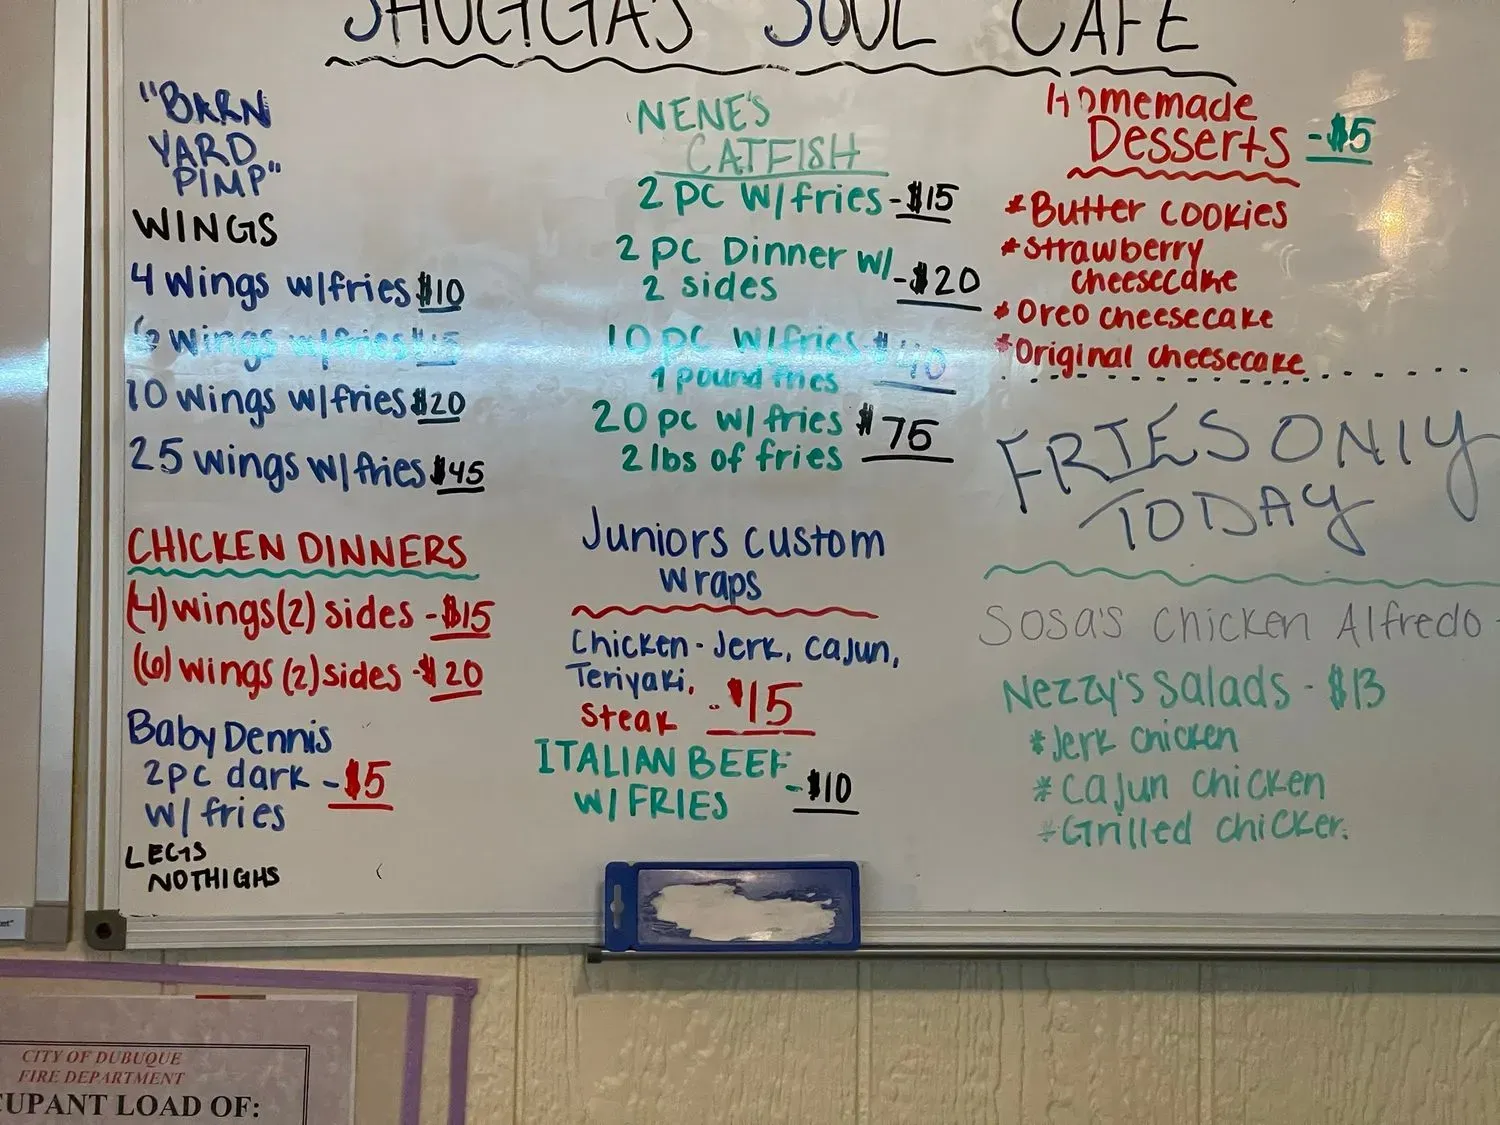 SHUGGA'S SOUL CAFE
"BARN
YARD
PIMP"
WINGS
4 Wings w/fries $10
6 Wings w/fries $15
10 Wings w/fries $20
25 Wings w/fries $45
CHICKEN DINNERS
(4) wings (2) sides - $15
(6) wings (2) sides - $20
Baby Dennis
2pc dark - $5
w/ fries
LEGS
NO THIGHS
NENE'S
CATFISH
2 pc w/fries - $15
2 pc Dinner w/
2 sides - $20
10 pc w/fries $40
1 pound fries
20 pc w/ fries $75
2 lbs of fries
Juniors Custom
Wraps
Chicken - Jerk, Cajun,
Teriyaki,
Steak - $15
ITALIAN BEEF
W/ FRIES - $10
Homemade
Desserts - $5
* Butter cookies
* Strawberry
cheesecake
* Oreo cheesecake
* Original cheesecake
FRIES ONLY
TODAY
Sosa's Chicken Alfredo -
Nezzy's Salads - $13
* Jerk chicken
* Cajun chicken
* Grilled chicken
CITY OF DUBUQUE
FIRE DEPARTMENT
CUPANT LOAD OF: